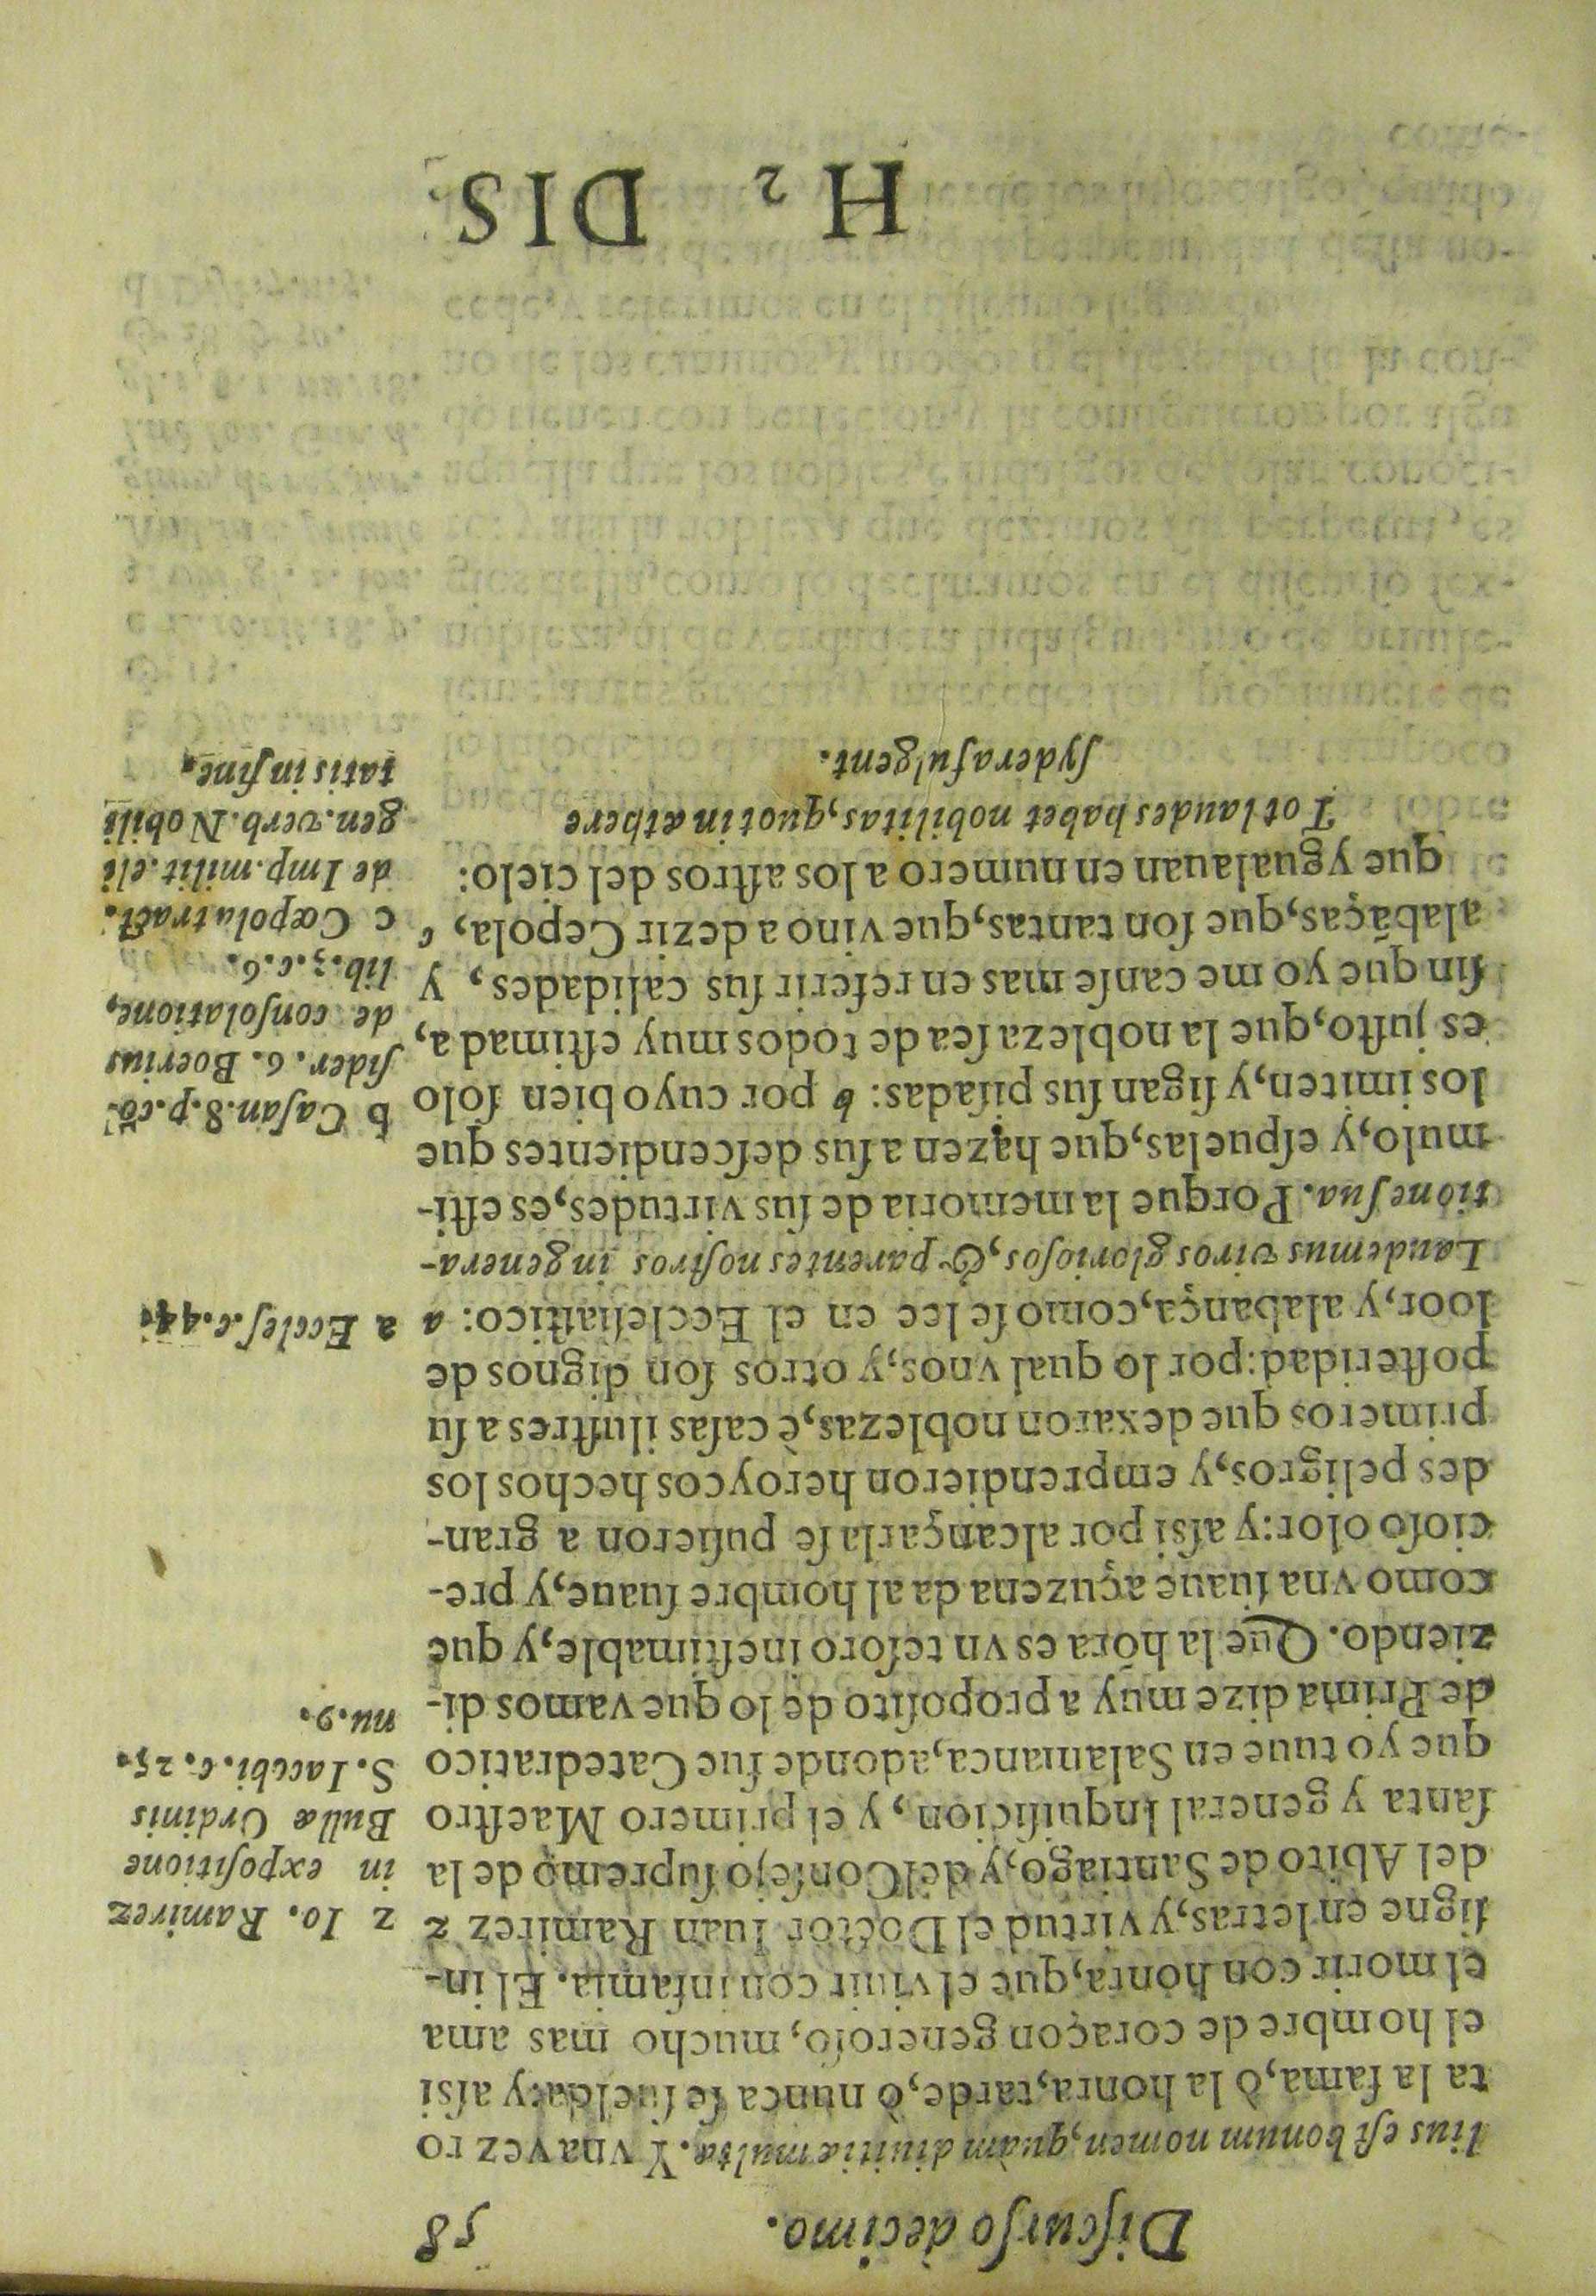 Discurso decimo. 58
lius est bonum nomen, quàm diuitiæ multæ. Y vna vez ro
ta la fama, ò la honra, tarde, ò nunca se suelda: y assi
el hombre de coraçon generoso, mucho mas ama
el morir con honra, que el viuir con infamia. El in-
signe en letras, y virtud el Doctor Iuan Ramirez z
del Abito de Santiago, y del Consejo supremo de la
santa y general Inquisicion, y el primero Maestro
que yo tuue en Salamanca, adonde fue Catedratico
de Prima dize muy a proposito de lo que vamos di-
ziendo. Que la hõra es vn tesoro inestimable, y que
como vna suaue açuzena da al hombre suaue, y pre-
cioso olor: y assi por alcançarla se pusieron a gran-
des peligros, y emprendieron heroycos hechos los
primeros que dexaron noblezas, è casas ilustres a su
posteridad: por lo qual vnos, y otros son dignos de
loor, y alabança, como se lee en el Ecclesiastico: a
Laudemus viros gloriosos, & parentes nostros in genera-
tione sua. Porque la memoria de sus virtudes, es esti-
mulo, y espuelas, que hazen a sus descendientes que
los imiten, y sigan sus pisadas: b por cuyo bien solo
es justo, que la nobleza sea de todos muy estimada,
sin que yo me canse mas en referir sus calidades, y
alabãças, que son tantas, que vino a dezir Cepola, c
que ygualauan en numero a los astros del cielo:
Tot laudes habet nobilitas, quot in æthere
sydera fulgent.
H 2 DIS
z Io. Ramirez
in expositione
Bullæ Ordinis
S. Iacobi. c. 25.
nu. 9.
a Ecclesi. c. 44.
b Casan. 8. p. cõ
sider. 6. Boerius
de consolatione,
lib. 3. c. 6.
c Cœpola tract.
de Imp. milit. eli
gen. verb. Nobili
tatis in fine.